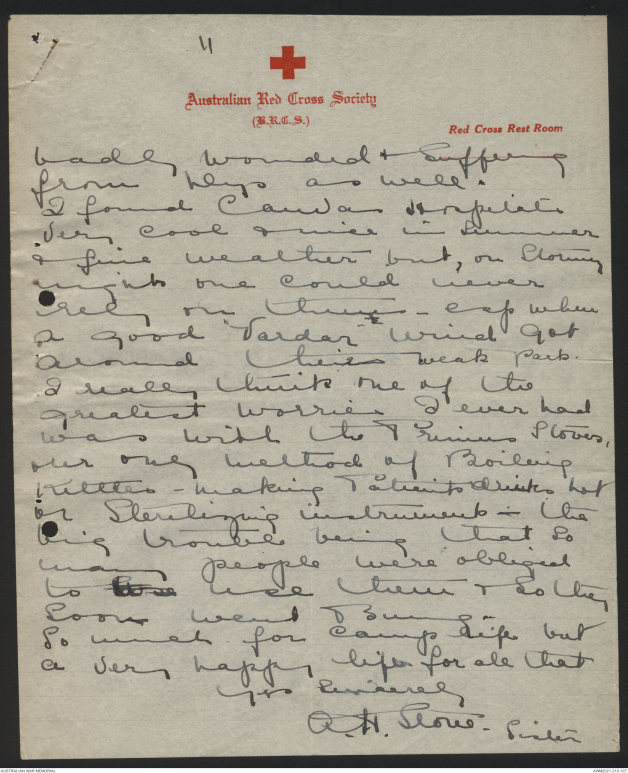 11
Australian Red Cross Society
(B.R.C.S.)
Red Cross Rest Room
badly wounded & Suffering
from as well.
I found Canvas Hospitals
Very cool & nice in Summer
& fine weather but, on Stormy
nights one could never
rely on them - esp when
a good "Vardar" Wind got
around their weak part.
I really think one of the
greatest worries I ever had
was with the Primus Stoves,
our only method of Boiling
Kettles - making Patients drinks hot
or Sterilizing instruments - the
big trouble being that so
many people were obliged
to use them & so they
soon went Bung.
So much for Camp life but
a very happy life for all that
Yrs Sincerely
A.H. Stowe. Sister
AUSTRALIAN WAR MEMORIAL